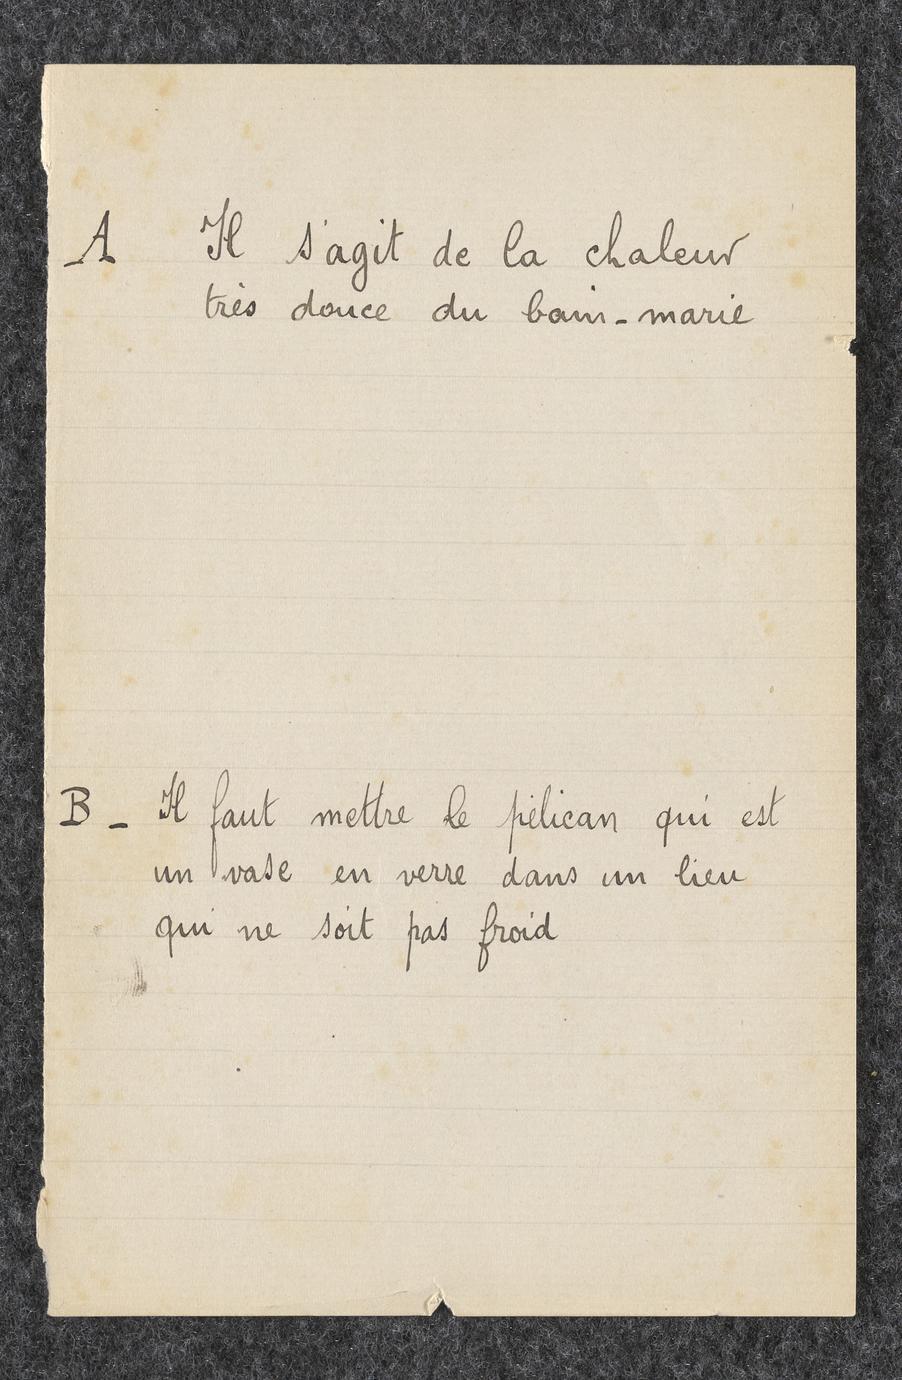 A Il s'agit de la chaleur
très douce du bain-marie
B - Il faut mettre le pélican qui est
un vase en verre dans un lieu
qui ne soit pas froid